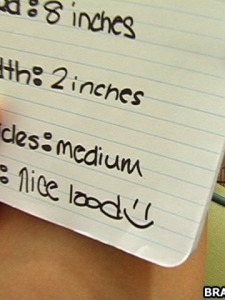 : 8 inches
dth: 2 inches
cles: medium
: nice load :)
BRA